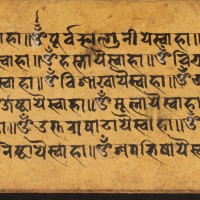 हा॥ॐ पूर्वफाल्गुनीयेस्वाहा
हा॥ॐ हस्तायैस्वाहा॥ॐ
हा॥ॐ विशाखायैस्वाहा॥ॐ
ष्ठायैस्वाहा॥ॐ मूलायैस्वाहा
हा॥ॐ उत्तराषाढायैस्वाहा॥ॐ
निष्ठायैस्वाहा॥ॐ शतभिषायैस्वा